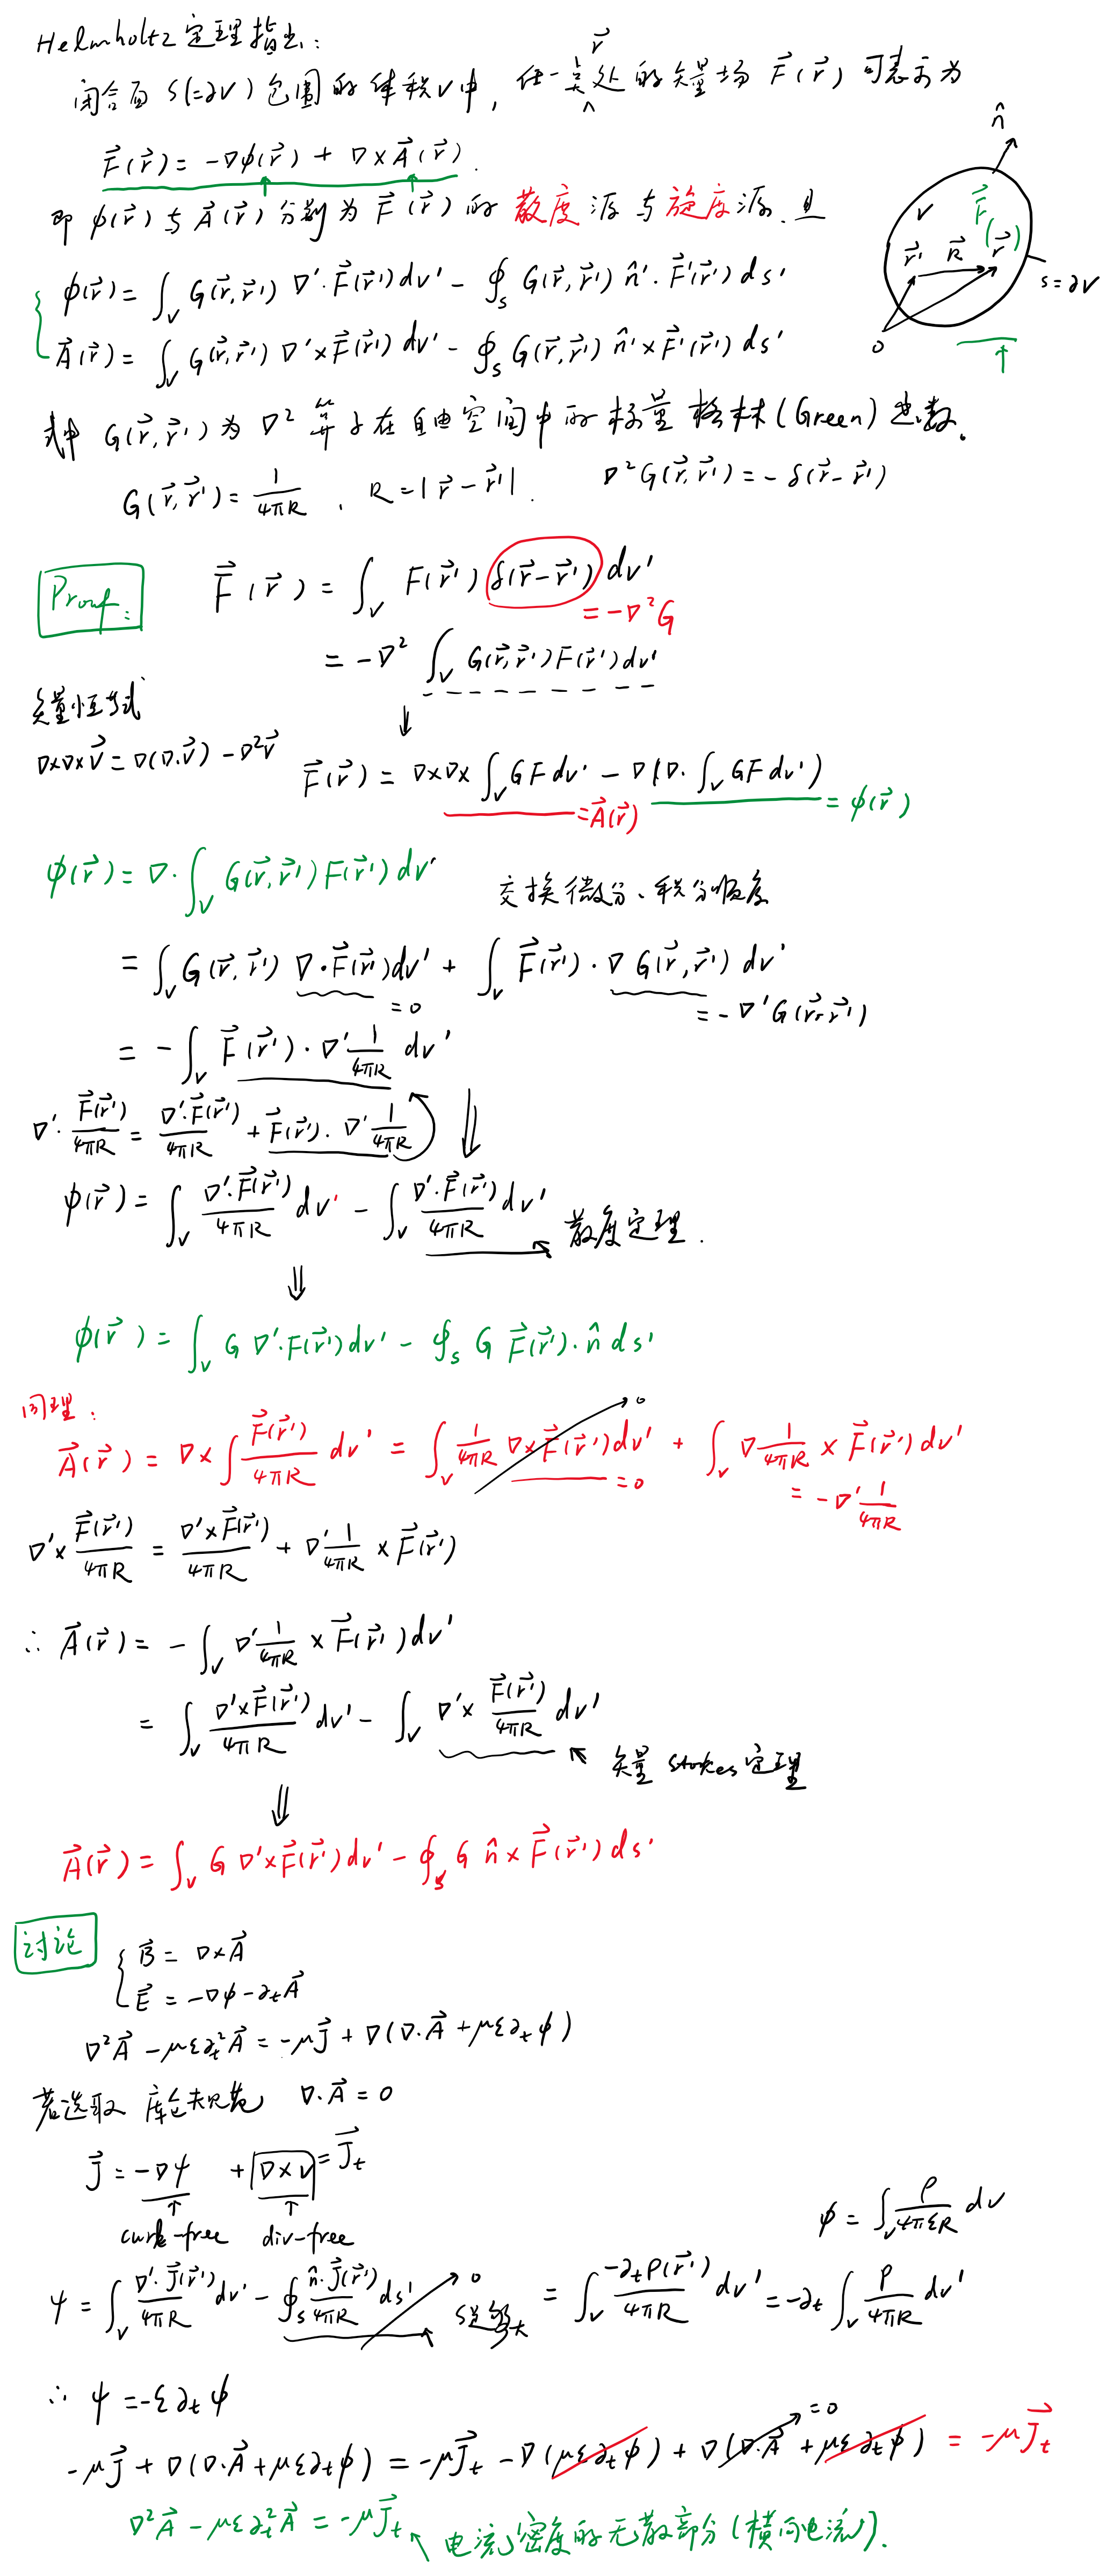 Helmholtz定理指出:
闭合面 S(=∂V) 包围的体积V中, 任一点 r⃗ 处的矢量场 F⃗(r⃗) 可表示为
F⃗(r⃗) = -∇ϕ(r⃗) + ∇×A⃗(r⃗).
即 ϕ(r⃗) 与 A⃗(r⃗) 分别为 F⃗(r⃗) 的 散度源 与 旋度源. 且
ϕ(r⃗) = ∫_V G(r⃗,r⃗') ∇'·F⃗(r⃗') dv' - ∮_S G(r⃗,r⃗') n̂'·F⃗'(r⃗') ds'
A⃗(r⃗) = ∫_V G(r⃗,r⃗') ∇'×F⃗(r⃗') dv' - ∮_S G(r⃗,r⃗') n̂'×F⃗'(r⃗') ds'
n̂
V F⃗(r⃗)
r⃗' R⃗ r⃗
S=∂V
O
式中 G(r⃗,r⃗') 为 ∇² 算子在自由空间中的标量格林(Green)函数.
G(r⃗,r⃗') = 1/4πR , R=|r⃗-r⃗'|. ∇²G(r⃗,r⃗') = -δ(r⃗-r⃗')
Proof:
F⃗(r⃗) = ∫_V F(r⃗') δ(r⃗-r⃗') dv'
= -∇²G
= -∇² ∫_V G(r⃗,r⃗')F(r⃗')dv'
矢量恒等式
∇×∇×V⃗ = ∇(∇·V⃗) - ∇²V⃗
↓
F⃗(r⃗) = ∇×∇× ∫_V GF dv' - ∇(∇· ∫_V GF dv')
=A⃗(r⃗) = ϕ(r⃗)
ϕ(r⃗) = ∇· ∫_V G(r⃗,r⃗')F(r⃗') dv'
交换微分、积分顺序
= ∫_V G(r⃗,r⃗') ∇·F⃗(r⃗')dv' + ∫_V F⃗(r⃗')·∇G(r⃗,r⃗') dv'
=0 = -∇'G(r⃗,r⃗')
= -∫_V F⃗(r⃗')·∇' 1/4πR dv'
∇'· F⃗(r⃗')/4πR = ∇'·F⃗(r⃗')/4πR + F⃗(r⃗')·∇' 1/4πR ⇓
ϕ(r⃗) = ∫_V ∇'·F⃗(r⃗')/4πR dv' - ∫_V ∇'·F⃗(r⃗')/4πR dv'
↖ 散度定理.
⇓
ϕ(r⃗) = ∫_V G ∇'·F(r⃗')dv' - ∮_S G F⃗(r⃗')·n̂ ds'
同理:
A⃗(r⃗) = ∇× ∫ F⃗(r⃗')/4πR dv' = ∫_V 1/4πR ∇×F⃗(r⃗')dv' + ∫_V ∇ 1/4πR × F⃗(r⃗')dv'
0
=0 = -∇' 1/4πR
∇'× F⃗(r⃗')/4πR = ∇'×F⃗(r⃗')/4πR + ∇' 1/4πR × F⃗(r⃗')
∴ A⃗(r⃗) = -∫_V ∇' 1/4πR × F⃗(r⃗')dv'
= ∫_V ∇'×F⃗(r⃗')/4πR dv' - ∫_V ∇'× F⃗(r⃗')/4πR dv'
↖ 矢量 Stokes 定理
⇓
A⃗(r⃗) = ∫_V G ∇'×F⃗(r⃗')dv' - ∮_S G n̂×F⃗(r⃗') ds'
讨论
B⃗ = ∇×A⃗
E⃗ = -∇ϕ-∂tA⃗
∇²A⃗ - με∂t²A⃗ = -μJ⃗ + ∇(∇·A⃗ + με∂tϕ)
若选取 库仑规范 ∇·A⃗ = 0
J⃗ = -∇ψ + ∇×v = J⃗t
↑ ↑
curl-free div-free
ϕ = ∫_V ρ/4πεR dv
ψ = ∫_V ∇'·J⃗(r⃗')/4πR dv' - ∮_S n̂·J⃗(r⃗')/4πR ds' = ∫_V -∂tρ(r⃗')/4πR dv' = -∂t ∫_V ρ/4πR dv'
0
S足够大
∴ ψ = -ε∂tϕ
=0
-μJ⃗ + ∇(∇·A⃗+με∂tϕ) = -μJ⃗t - ∇(με∂tϕ) + ∇(∇·A⃗ + με∂tϕ) = -μJ⃗t
∇²A⃗ - με∂t²A⃗ = -μJ⃗t ↖ 电流密度的无散部分(横向电流).